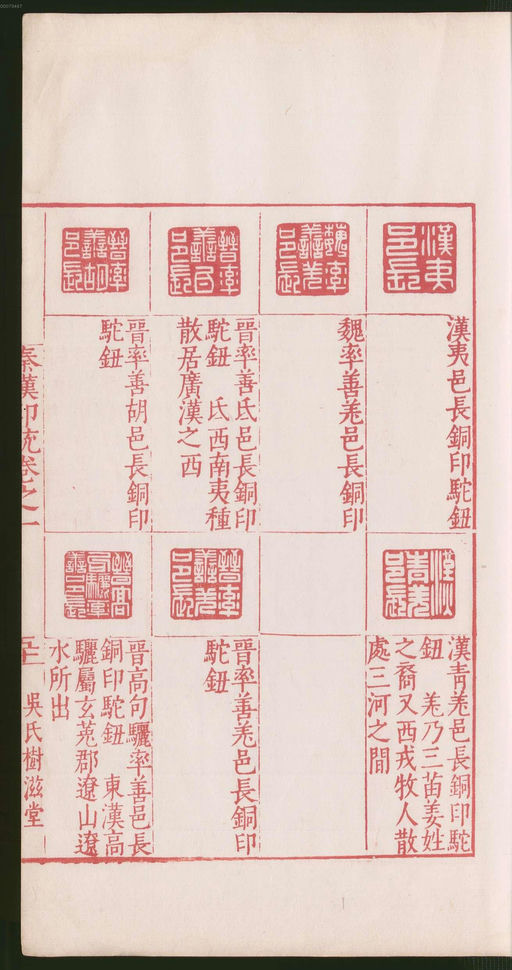 00079447
漢夷邑長
漢夷邑長銅印駝鈕
漢青羌邑長
漢青羌邑長銅印駝
鈕 羌乃三苗姜姓
之裔又西戎牧人散
處三河之間
魏率善羌邑長
魏率善羌邑長銅印
晉率善氐邑長
晉率善氐邑長銅印
駝鈕 氐西南夷種
散居廣漢之西
晉率善羌邑長
晉率善羌邑長銅印
駝鈕
晉率善胡邑長
晉率善胡邑長銅印
駝鈕
晉高句驪率善邑長
晉高句驪率善邑長
銅印駝鈕 東漢高
驪屬玄菟郡遼山遼
水所出
秦漢印統卷之一
吳氏樹滋堂